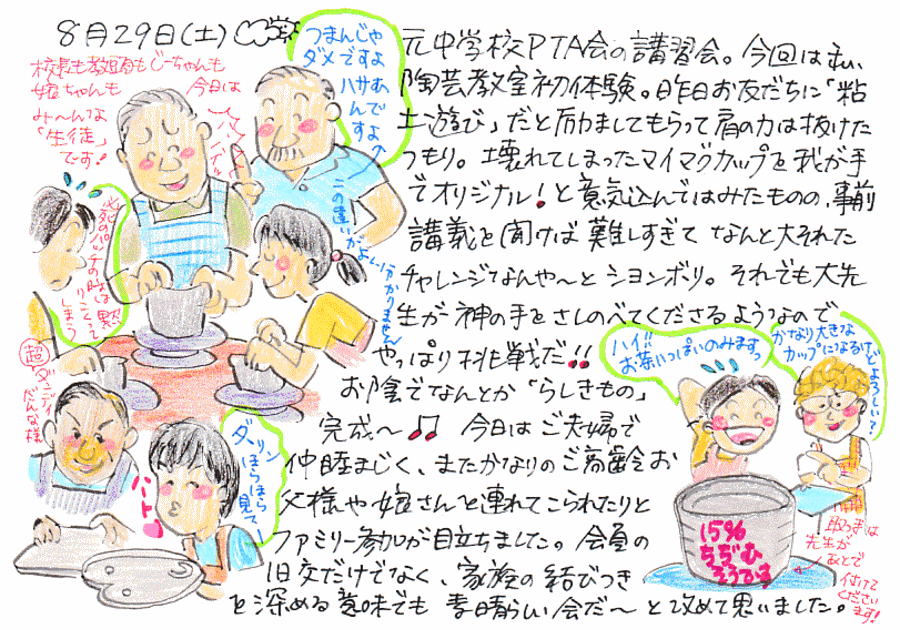 8月29日(土)
校長も教頭もじーちゃんも
娘ちゃんも
今日は
み〜んな
「生徒」
です!
つまんじゃ
ダメですよ
ハサむ
んで
すよ〜
この違いがよぃ分かりません
必死のパッチの時は黙
りこくって
しまう
超
ダンディ
だんな様
ダーリン
ほらほら
見て〜
ハート
元中学校PTA会の講習会。今回は
陶芸教室初体験。昨日お友だちに「粘
土遊び」だと励ましてもらって肩の力は抜けた
つもり。壊れてしまったマイマグカップを我が手
でオリジナル!と意気込んではみたものの、事前
講義を聞けば難しすぎてなんと大それた
チャレンジなんや〜とションボリ。それでも大先
生が神の手をさしのべてくださるようなので
やっぱり挑戦だ!!
お陰でなんとか「らしきもの」
完成〜♫ 今日はご夫婦で
仲睦まじく、またかなりのご高齢お
父様や娘さんを連れてこられたりと
ファミリー参加が目立ちました。会員の
旧交だけでなく、家族の結びつき
を深める意味でも素晴らしい会だ〜と改めて思いました。
ハイ!!
お茶いっぱいのみますっ
かなり大きな
カップになるけどよろしい?
15%
ちぢむ
そうです
取っ手は
先生が
あとで
付けて
ください
ます!